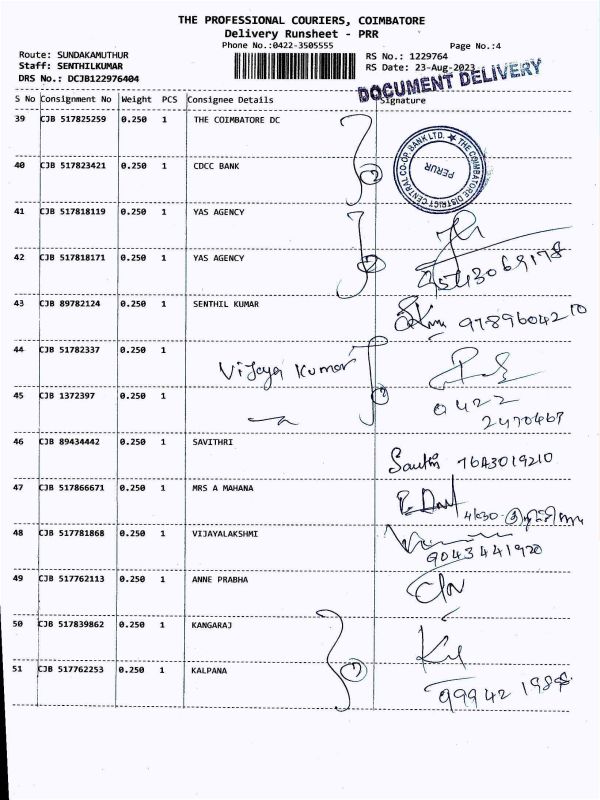 THE PROFESSIONAL COURIERS, COIMBATORE
Delivery Runsheet - PRR
Phone No.:0422-3505555 Page No.:4
Route: SUNDAKAMUTHUR RS No.: 1229764
Staff: SENTHILKUMAR RS Date: 23-Aug-2023
DRS No.: DCJB122976404
DOCUMENT DELIVERY
S No Consignment No Weight PCS Consignee Details Signature
39 CJB 517825259 0.250 1 THE COIMBATORE DC
THE COIMBATORE DISTRICT CENTRAL CO-OP. BANK LTD. ★
PERUR
40 CJB 517823421 0.250 1 CDCC BANK
41 CJB 517818119 0.250 1 YAS AGENCY
42 CJB 517818171 0.250 1 YAS AGENCY
43 CJB 89782124 0.250 1 SENTHIL KUMAR
9789604210
44 CJB 51782337 0.250 1
Vijaya Kumar
45 CJB 1372397 0.250 1
0422
2470467
46 CJB 89434442 0.250 1 SAVITHRI
7643019210
47 CJB 517866671 0.250 1 MRS A MAHANA
48 CJB 517781868 0.250 1 VIJAYALAKSHMI
9043441920
49 CJB 517762113 0.250 1 ANNE PRABHA
50 CJB 517839862 0.250 1 KANGARAJ
51 CJB 517762253 0.250 1 KALPANA